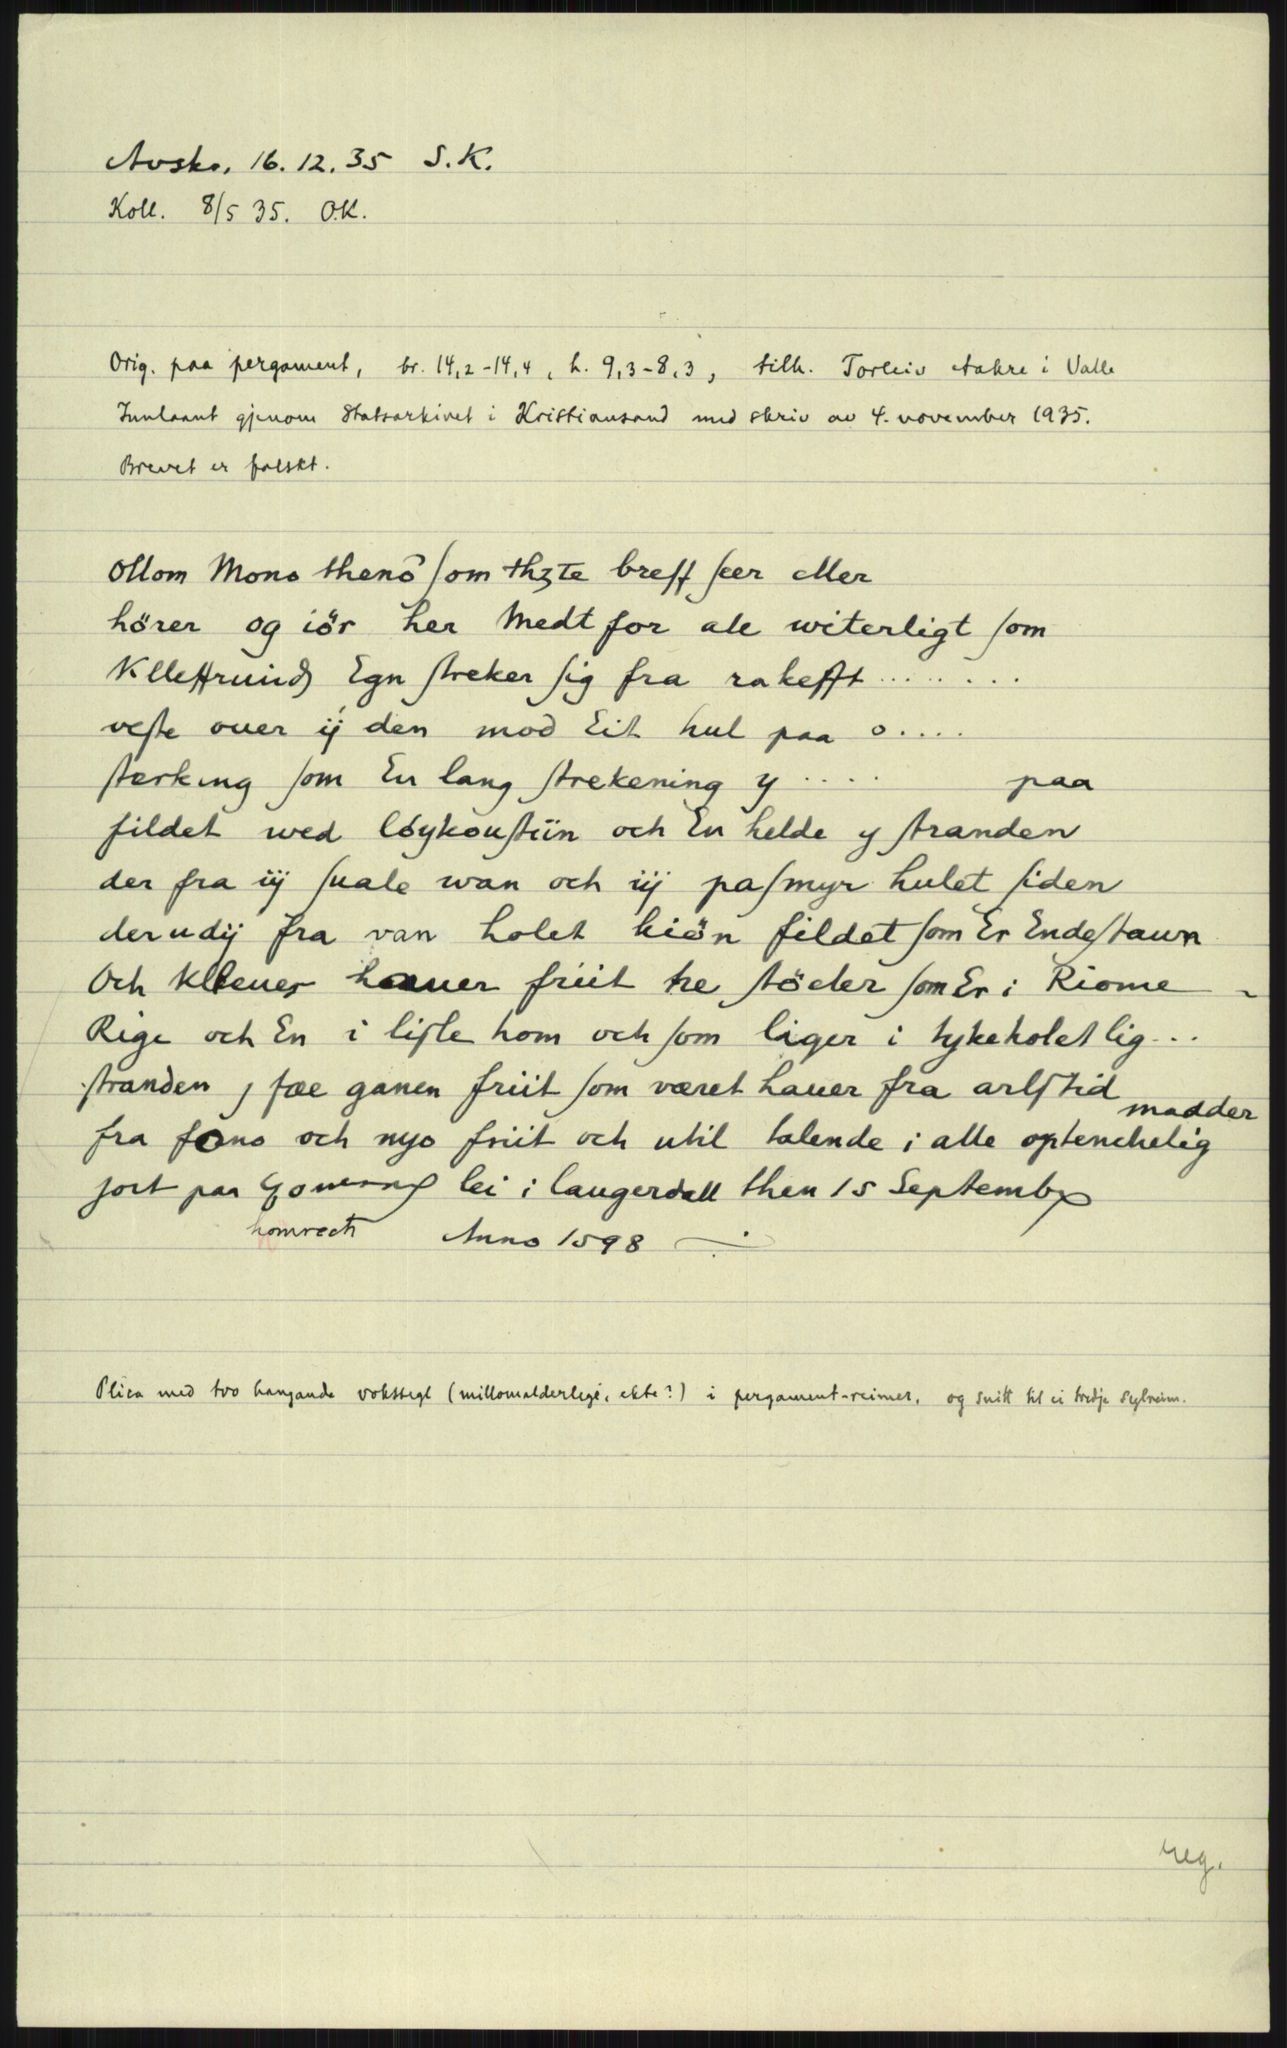 Avskr. 16.12.35 S.K.
Koll. 8/5 35. O.K.
Orig. paa pergament, br. 14,2-14,4, h. 9,3-8,3, tilh. Torleiv Aakre i Valle
Innlaant gjenom Statsarkivet i Kristiansand med skriv av 4. november 1935.
Brevet er falskt.
Ollom Mono thenō som thꝫte breff seer eller
hörer og iör her Medt for ale witerligt som
Egn streker sig fra rakefft ........
veste ouer ij den mod Eit hul paa o....
sterking som En lang strekening y .... paa
fildet wed löykoustiin och En helde y stranden
der fra iij suale wan och iij pasmyr hulet siden
derudij fra van holet kiön fildet som Er Endestawn
Och Kleuer hauer friit tre stöder som Er i Riome -
Rige och En i lisle hom och som liger i tykeholet lig...
stranden, fæe ganen friit som været hauer fra arlstid
madder
fra fono och nyo friit och util talende i alle optenchelig
jort paa lei i laugerdall then 15 Septembꝫ
homrecti Anno 1598
Plica med tvo hangande vokssegl (millomalderlege, ekte?) i pergament-reimer, og snitt til ei tredje seglreim.
reg.